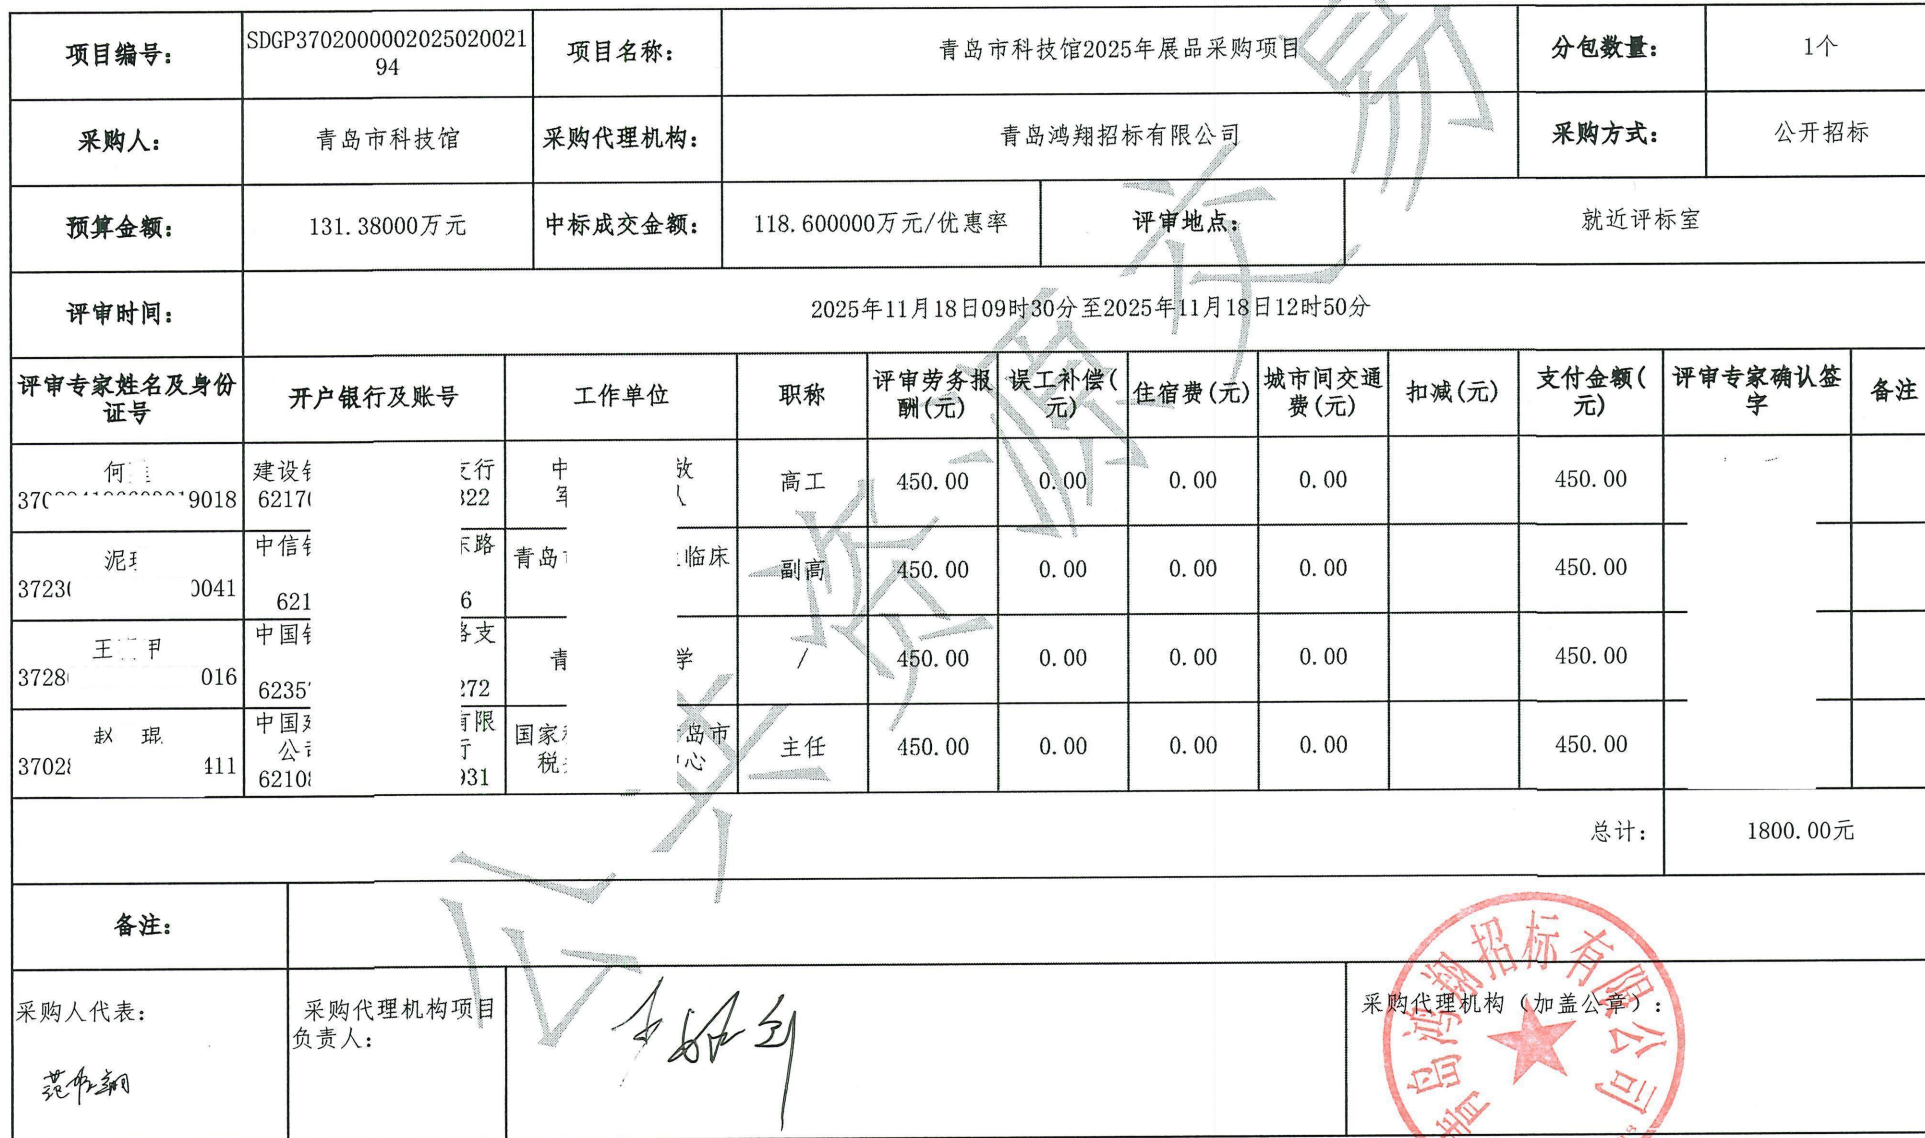 项目编号：
SDGP3702000002025020021
94
项目名称：
青岛市科技馆2025年展品采购项目
分包数量：
1个
采购人：
青岛市科技馆
采购代理机构：
青岛鸿翔招标有限公司
采购方式：
公开招标
预算金额：
131.38000万元
中标成交金额：
118.600000万元/优惠率
评审地点：
就近评标室
评审时间：
2025年11月18日09时30分至2025年11月18日12时50分
评审专家姓名及身份
证号
开户银行及账号
工作单位
职称
评审劳务报
酬(元)
误工补偿(
元)
住宿费(元)
城市间交通
费(元)
扣减(元)
支付金额(
元)
评审专家确认签
字
备注
何
9018
建设 支行
6217 322
中
高工
450.00
0.00
0.00
0.00
450.00
泥
3723 0041
中信 东路
621 6
青岛 临床
副高
450.00
0.00
0.00
0.00
450.00
王 甲
3728 016
中国 路支
6235 272
青 学
/
450.00
0.00
0.00
0.00
450.00
赵 琨
3702 411
中国 有限
公司 行
6210 931
国家 青岛市
税 中心
主任
450.00
0.00
0.00
0.00
450.00
总计：
1800.00元
备注：
采购人代表：
采购代理机构项目
负责人：
采购代理机构（加盖公章）：
青岛鸿翔招标有限公司
公共资源交易